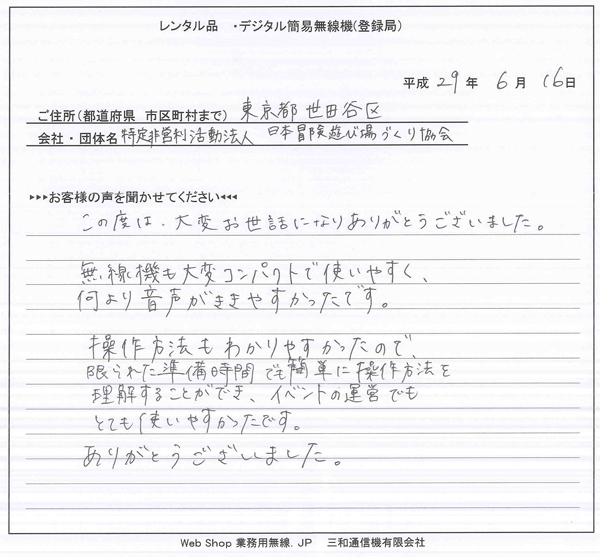 レンタル品 ・デジタル簡易無線機(登録局)
平成 29 年 6 月 16 日
ご住所(都道府県 市区町村まで) 東京都世田谷区
会社・団体名 特定非営利活動法人 日本冒険遊び場づくり協会
▶▶▶お客様の声を聞かせてください◀◀◀
この度は、大変お世話になりありがとうございました。
無線機も大変コンパクトで使いやすく、
何より音声がききやすかったです。
操作方法もわかりやすかったので、
限られた準備時間でも簡単に操作方法を
理解することができ、イベントの運営でも
とても使いやすかったです。
ありがとうございました。
Web Shop 業務用無線.JP 三和通信機有限会社